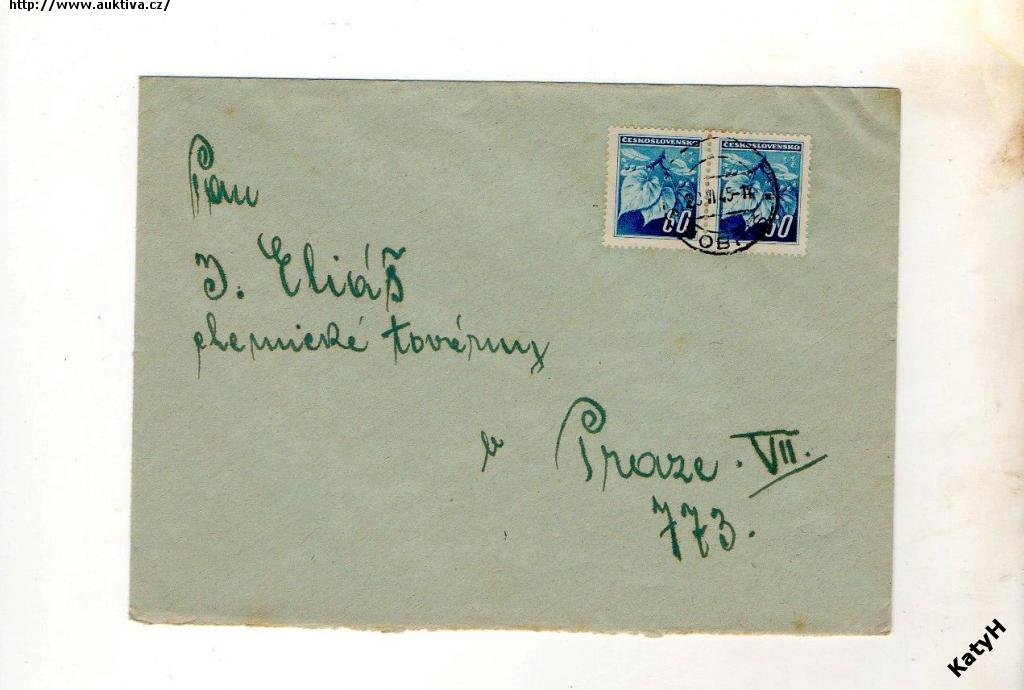 http://www.auktiva.cz/
ČESKOSLOVENSKO ČESKOSLOVENSKO
60 60
Pan
J. Eliáš
chemické továrny
v Praze. VII.
773.
KatyH